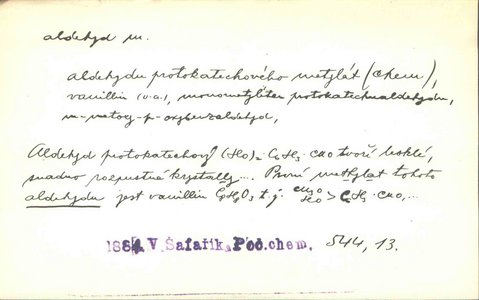 aldehyd m.
aldehydu protokatechového metylát (Chem),
vanillin (v.a.), monometyléter protokatechualdehydu,
m-metoxy-p-oxybenzaldehyd,
Aldehyd protokatechový (HO)₂ C₆H₃·CHO tvoří lesklé,
snadno rozpustné krystally... První methylat tohoto
aldehydu jest vanillin C₈H₈O₃ t.j. CH₃O HO > C₆H₃·CHO,...
188 V. Šafařík, Poč.chem. 544, 13.